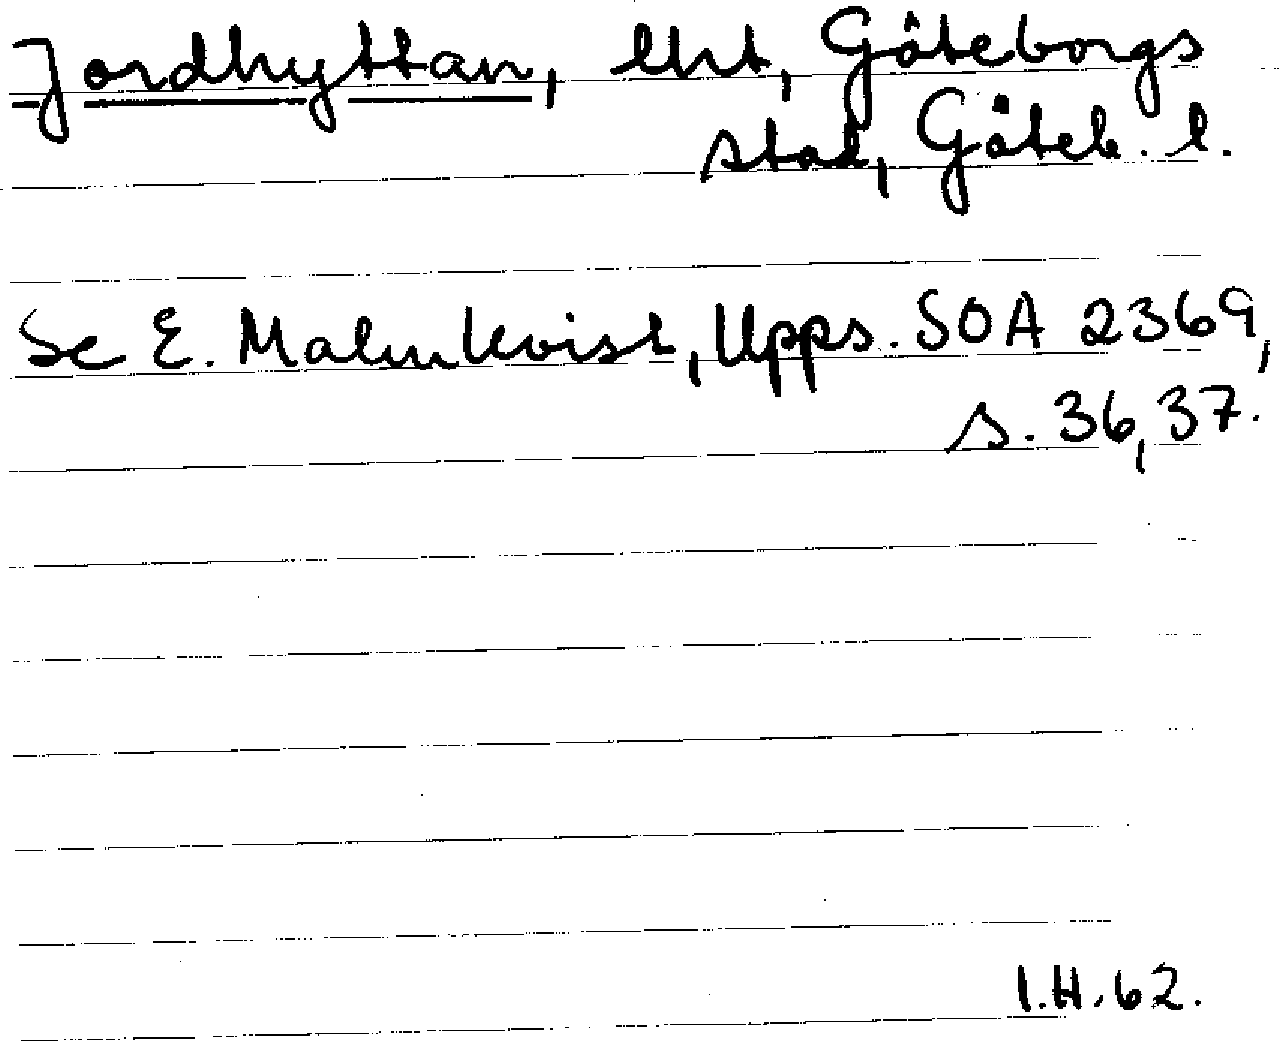 Jordhyttan, lht, Göteborgs
stad, Göteb. l.
Se E. Malmkvist, Upps. SOA 2369,
s. 36, 37.
I.H. 62.